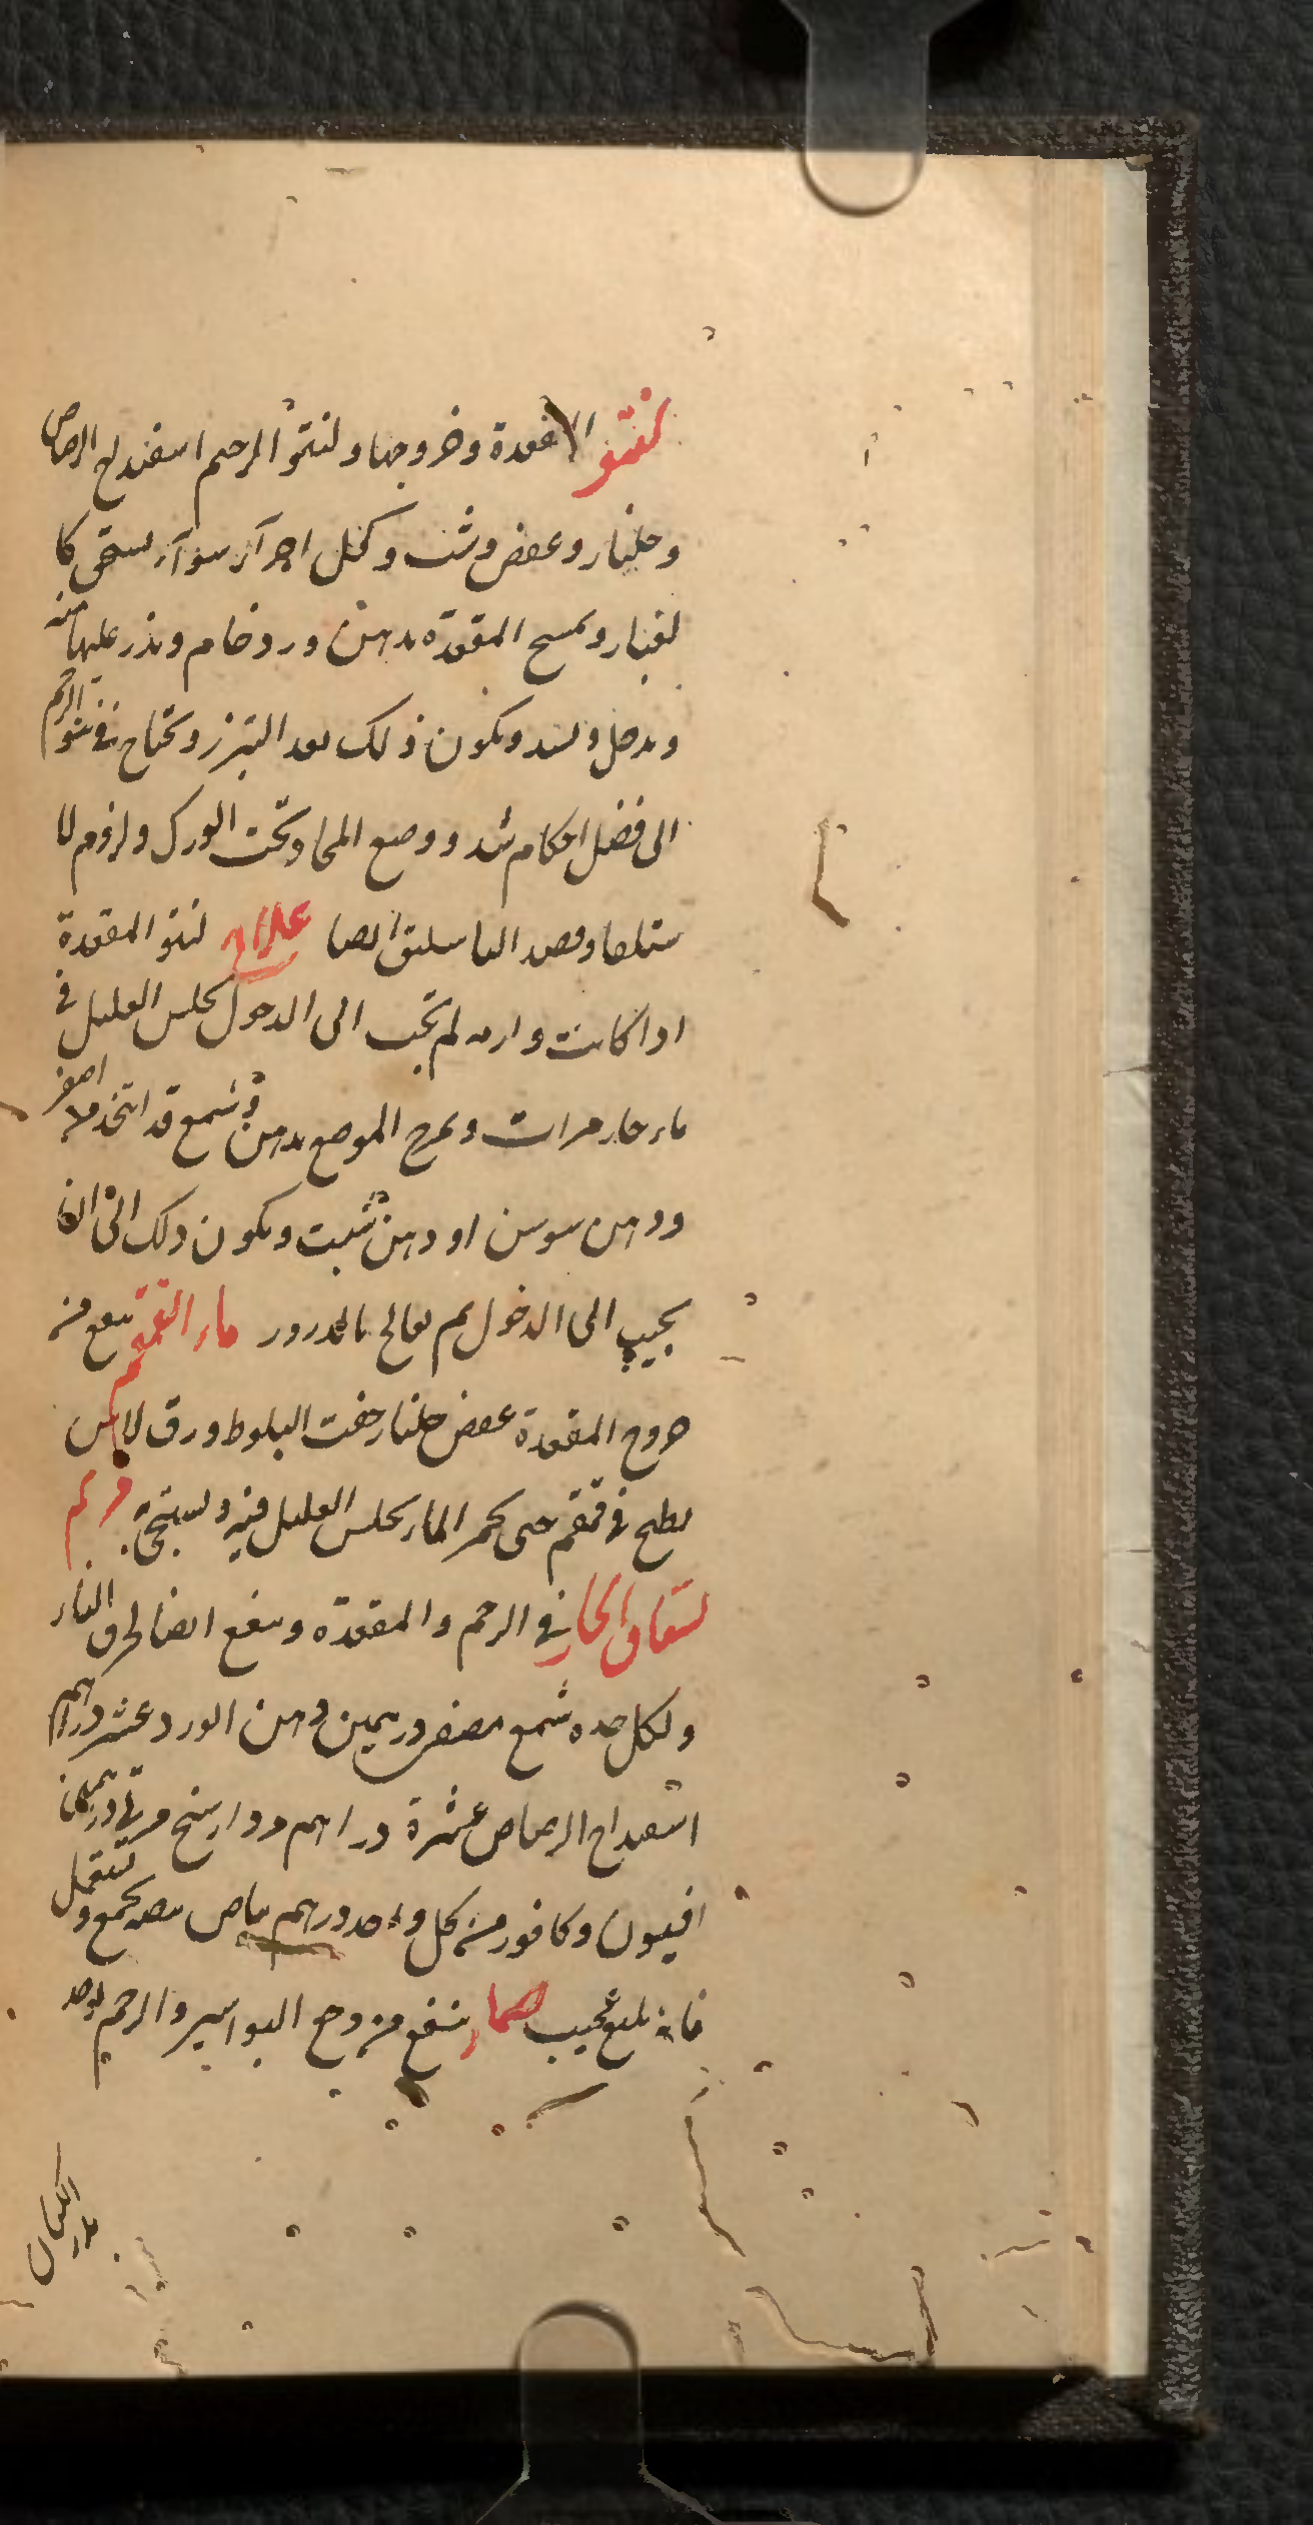 لنتو الاقعدة وخروجها ولنتو الرحم اسفنداج الرصاص
وجلنار وعفص وشب وكحل اجزآء سوآء يسحق كا
لغبار ويمسح المقعدة بدهن ورد خام ويذر عليها منه
ويدخل ويشد ويكون ذلك بعد التبرز وتحتاج في نتو الرحم
الى فضل احكام شد ووضع المخاد تحت الورك ولزوم لا
ستلقا وفصد الباسليق ايضا علاج لنتو المقعدة
اذا كانت وارمه لم تجب الى الدخول يجلس العليل في
ماء حار مرات ويمرخ الموضع بدهن وشمع قد اتخذ ملا اصفر
ودهن سوسن او دهن شبت ويكون ذلك الى ان
يجيب الى الدخول ثم يعالج بالذرور ماء القمقم ينفع من
خروج المقعدة عفص جلنار جفت البلوط ورق لاس
يطبخ في قمقم حتى يحمر الماء يجلس العليل فيه ويستنجي به مرهم
لشقاق الحار في الرحم والمقعدة وينفع ايضا لحرق النار
ولكل حده شمع مصفى درهمين دهن الورد عشر دراهم
اسفيداج الرصاص عشرة دراهم مرداسنج مربى درهمين
افيون وكافور من كل واحد درهم بياض بيضه يجمع ويستعمل
فانه بليغ عجيب ضماد ينفع من وجع البواسير والرحم يوخد
بزر الكتان